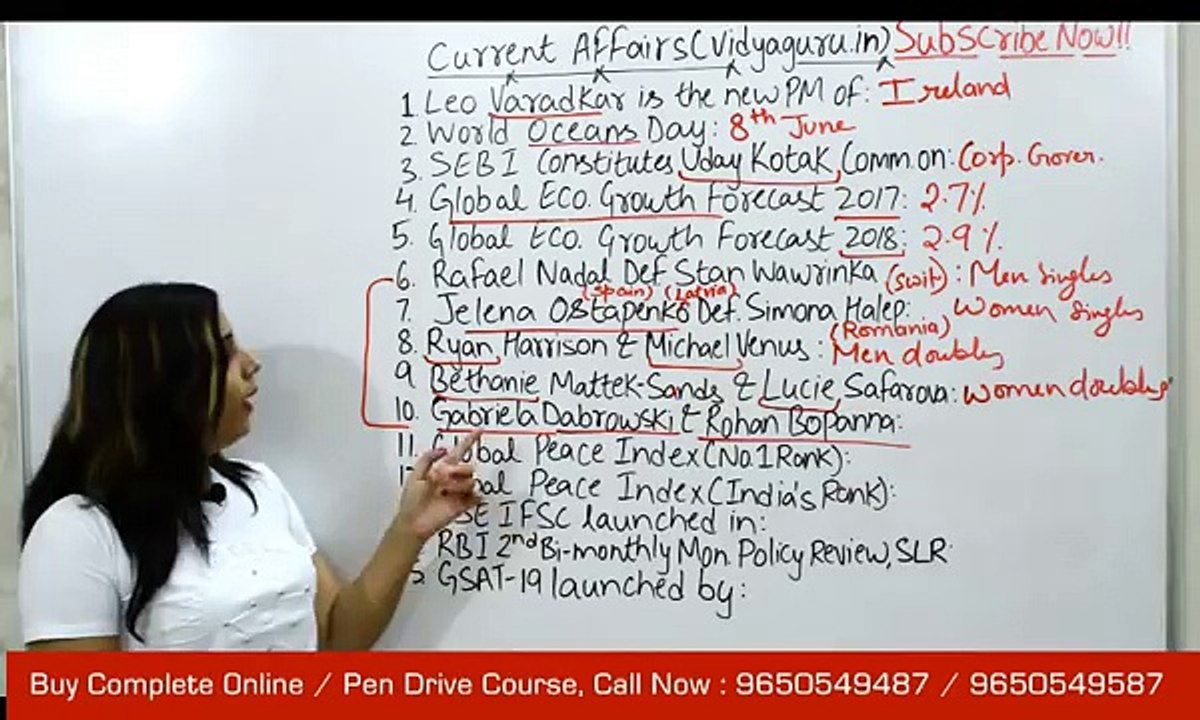 Current Affairs(Vidyaguru.in) Subscribe Now!!
1. Leo Varadkar is the new PM of: Ireland
2. World Oceans Day: 8th June
3. SEBI Constitutes Uday Kotak Comm. on: Corp. Gover.
4. Global Eco. Growth Forecast 2017: 2.7%
5. Global Eco. Growth Forecast 2018: 2.9%
6. Rafael Nadal Def. Stan Wawrinka (Swit): Men Singles
(Spain) (Latvia)
7. Jelena Ostapenko Def. Simona Halep: Women Singles
(Romania)
8. Ryan Harrison & Michael Venus: Men doubles
9. Bethanie Mattek-Sands & Lucie Safarova: women doubles
10. Gabriela Dabrowski & Rohan Bopanna:
11. Global Peace Index (No.1 Rank):
Peace Index (India's Rank):
IFSC launched in:
RBI 2nd Bi-monthly Mon. Policy Review, SLR
GSAT-19 launched by:
Buy Complete Online / Pen Drive Course, Call Now : 9650549487 / 9650549587